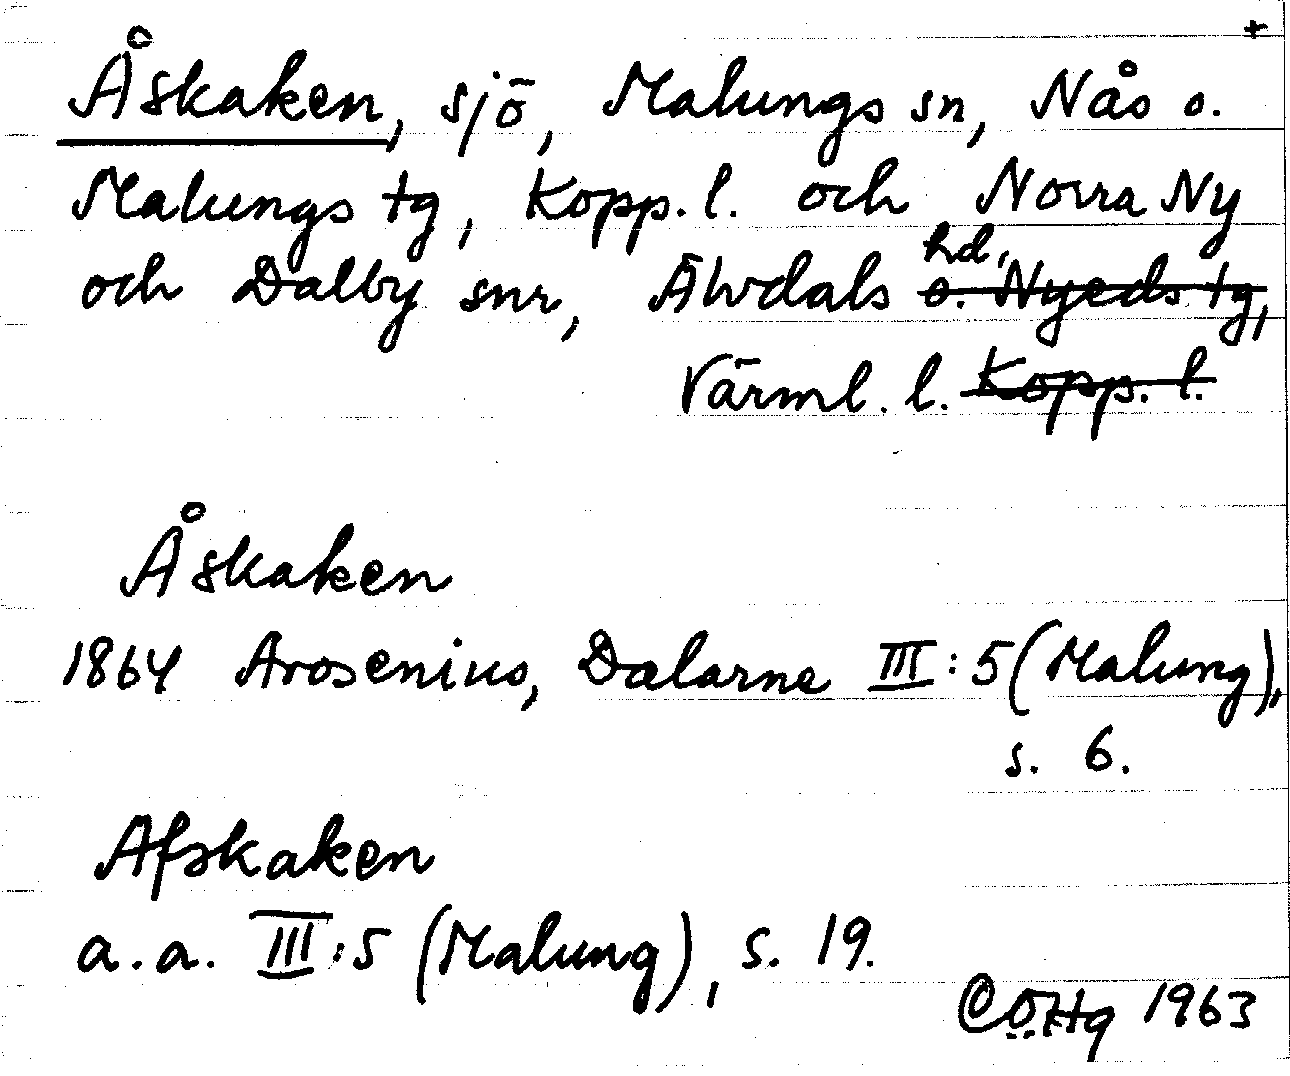 +
Åskaken, sjö, Malungs sn, Nås o.
Malungs tg, Kopp. l. och Norra Ny
och Dalby snr, Älvdals hd, o. Nyeds tg,
Värml. l. Kopp. l.
Åskaken
1864 Arosenius, Dalarne III:5 (Malung),
s. 6.
Afskaken
a.a. III:5 (Malung), s. 19.
1963